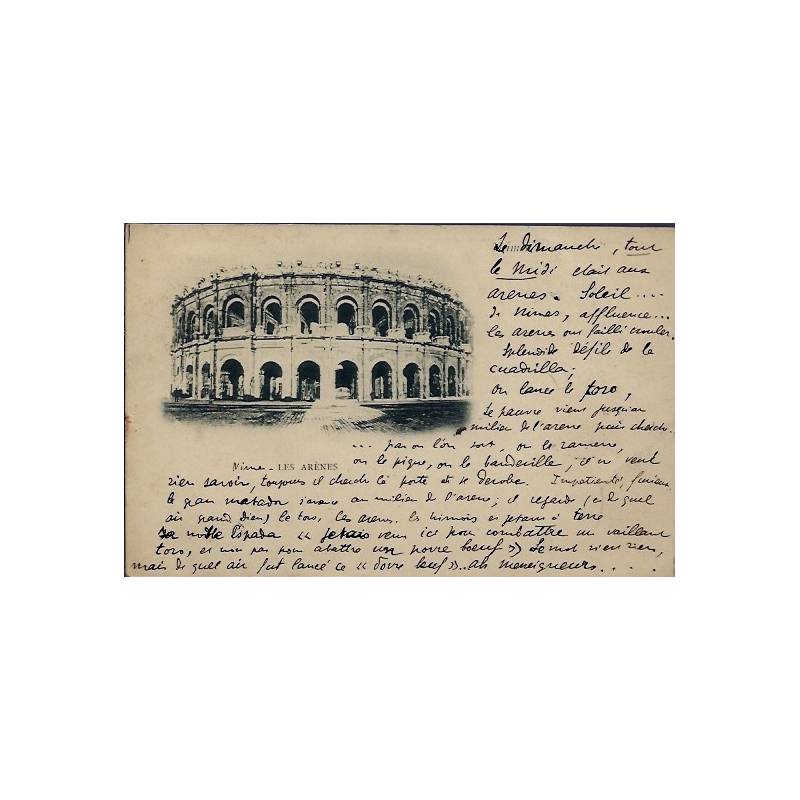 Le dimanche, tout
le Midi était aux
arènes. Soleil ....
de Nimes, affluence...
les arènes ont failli crouler.
Splendide défilé de la
cuadrilla;
on lance le toro,
le pauvre vient jusqu'au
milieu de l'arène puis cherche
... par où l'on sort, on le ramène,
on le pique, on le banderille, il n'en veut
Nîmes - LES ARÈNES
rien savoir, toujours il cherche la porte et se dérobe. Impatienté, furieux
le grand matador s'avance au milieu de l'arène; il regarde (de quel
air grand Dieu) le toro, les arènes, les et jetant à terre
sa noble Espada « Jetais venu ici pour combattre un vaillant
toro, et non pas pour abattre un povre boeuf » Le mot rien rien,
mais de quel air fut lancé ce « povre beuf »... Ah messeigneurs. . . .